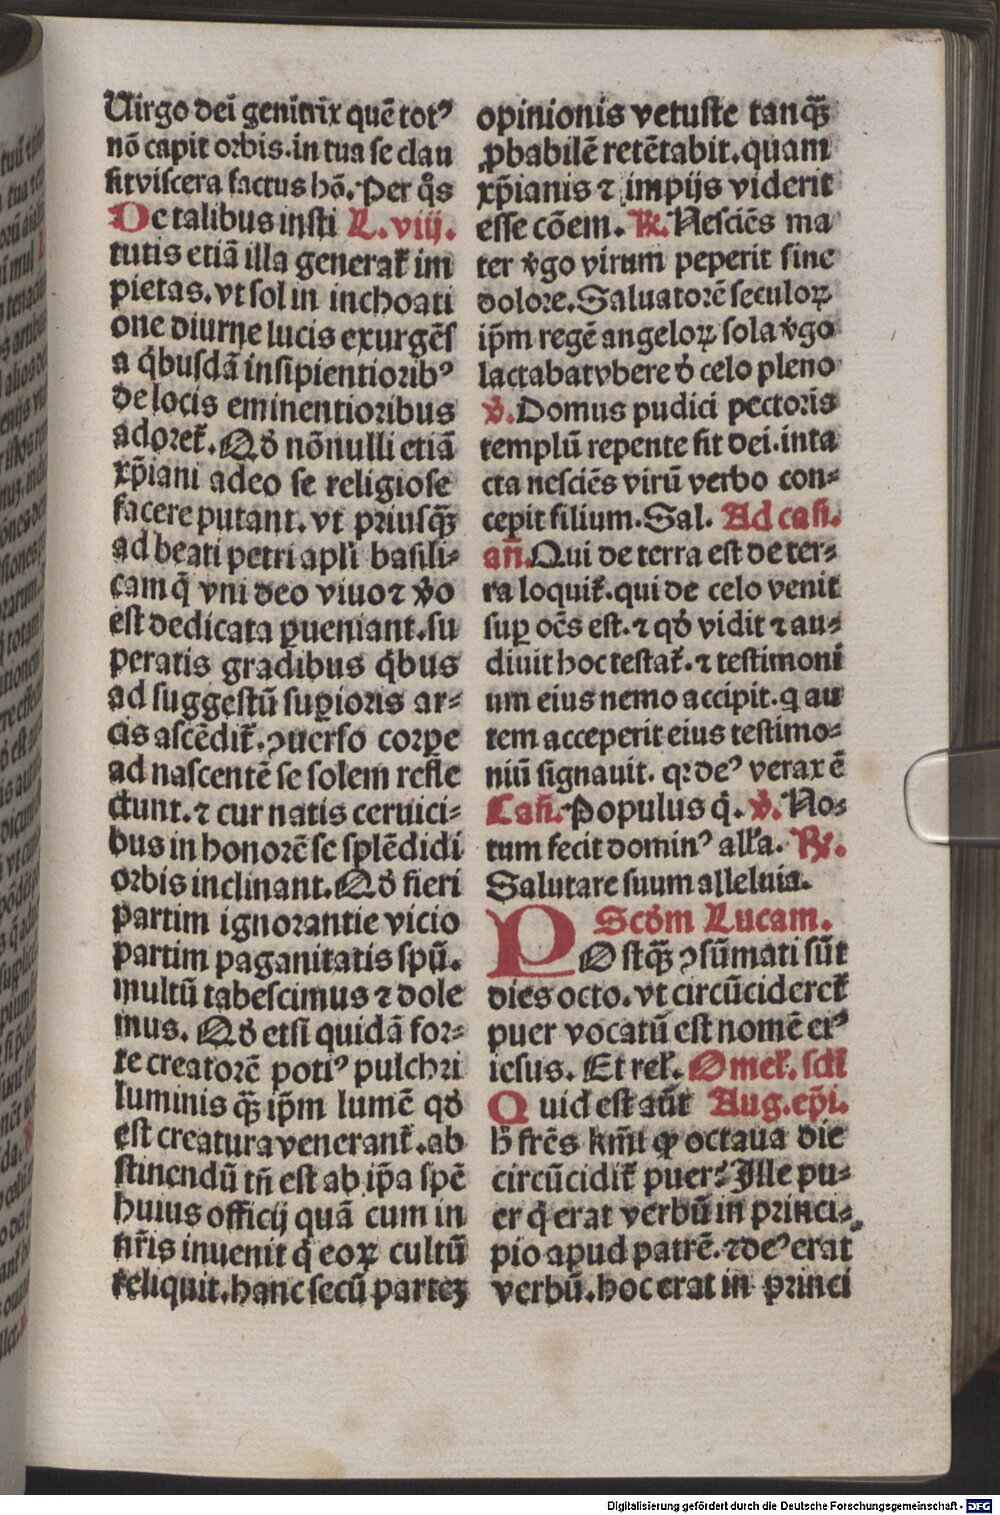 Uirgo dei genitrix quē totꝰ
nō capit orbis. in tua se clau
sit viscera factus hō. Per qͦs
De talibus insti L. viij.
tutis etiā illa generat̄ im
pietas. vt sol in inchoati
one diurne lucis exurgēs
a q̇busdā insipientioribꝰ
de locis eminentioribus
adoret̄. Qd̛ nōnulli etiā
xp̄iani adeo se religiose
facere putant. vt priusqꝫ̄
ad beati petri apl̄i basili⸗
cam q̇ vni deo viuo ⁊ v̛o
est dedicata ꝑueniant. su
peratis gradibus q̇bus
ad suggestū suꝑioris ar⸗
cis ascēdit̄. ꝯuerso corꝑe
ad nascentē se solem refle
ctunt. ⁊ cur natis ceruici⸗
bus in honorē se splēdidi
orbis inclinant. Qd̛ fieri
partim ignorantie vicio
partim paganitatis spū.
multū tabescimus ⁊ dole
mus. Qd̛ etsi quidā for⸗
te creatorē potiꝰ pulchri
luminis qꝫ̄ ip̄m lumē qd̛
est creatura venerant̄. ab
stinendū tn̄ est ab ip̄a spē
huius officij quā cum in
nr̄is inuenit q̇ eoꝝ cultū
reliquit. hanc secū partez
opinionis vetuste tanqꝫ̄
ꝓbabilē retētabit. quam
xp̄ianis ⁊ impijs viderit
esse cōem. ℟. Nesciēs ma
ter v̛go virum peperit sine
dolore. Saluatorē seculoꝝ
ip̄m regē angeloꝝ sola v̛go
lactabat vbere d̛ celo pleno
v̛. Domus pudici pectoris
templū repente fit dei. inta
cta nesciēs virū verbo con⸗
cepit filium. Sal. Ad cāſi.
an̄. Qui de terra est de ter⸗
ra loquit̄. qui de celo venit
suꝑ oēs est. ⁊ qd̛ vidit ⁊ au⸗
diuit hoc testat̄. ⁊ testimoni
um eius nemo accipit. q au
tem acceperit eius testimo⸗
niū signauit. qꝛ deꝰ verax ē
Cāſi. Populus q̇. v̛. No⸗
tum fecit dominꝰ all̄a. ℟.
Salutare suum alleluia.
Scd̛m Lucam.
POstqꝫ̄ ꝯsūmati sūt
dies octo. vt circūcideret̄
puer vocatū est nomē eiꝰ
iesus. Et rel̄. Omel̄. scī
Quid est aūt Aug. ep̄i.
h̄ frēs km̄i ꝙ octaua die
circūcidit̄ puer? Ille pu⸗
er q̇ erat verbū in princi⸗
pio apud patrē. ⁊ deꝰ erat
verbū. hoc erat in princi
Digitalisierung gefördert durch die Deutsche Forschungsgemeinschaft - DFG